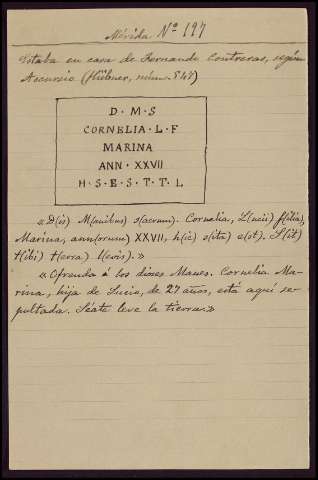 Mérida Nº 197
Estaba en casa de Fernando Contreras, según
Accursio (Hübner, núm. 547)
D · M · S
CORNELIA · L · F
MARINA
ANN · XXVII
H · S · E · S · T · T · L
«D(is) M(anibus) s(acrum). Cornelia, L(ucii) f(ilia),
Marina, ann(orum) XXVII, h(ic) s(ita) e(st). S(it)
t(ibi) t(erra) l(evis).»
«Ofrenda á los dioses Manes. Cornelia Ma-
rina, hija de Lucio, de 27 años, está aquí se-
pultada. Séate leve la tierra.»